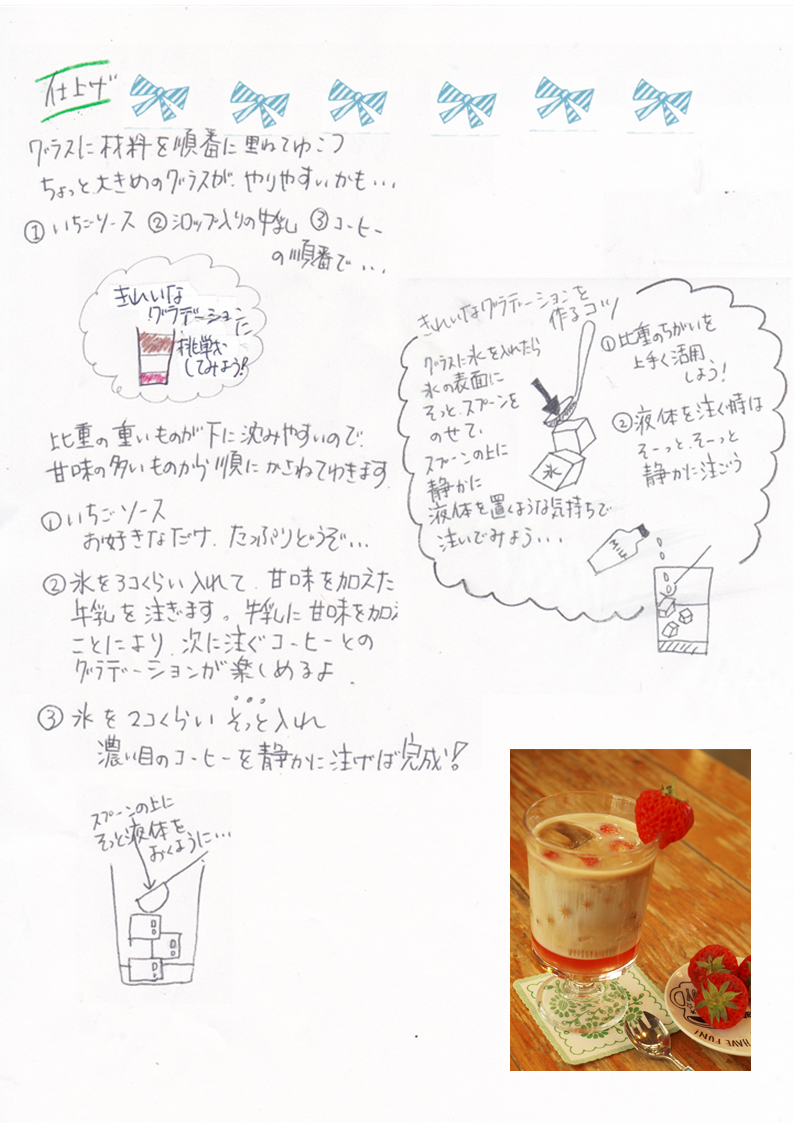 仕上げ
グラスに材料を順番に重ねてゆこう
ちょっと大きめのグラスが、やりやすいかも...
① いちごソース ② シロップ入りの牛乳 ③ コーヒー
の順番で...
きれいな
グラデーションに
挑戦
してみよう!
比重の重いものが下に沈みやすいので、
甘味の多いものから順にかさねてゆきます
① いちごソース
お好きなだけ、たっぷりどうぞ...
② 氷を3コくらい入れて、甘味を加えた
牛乳を注ぎます。牛乳に甘味を加え
ことにより、次に注ぐコーヒーとの
グラデーションが楽しめるよ.
③ 氷を2コくらい そっと入れ
濃い目のコーヒーを静かに注げば完成!
スプーンの上に
そっと液体を
おくように...
きれいなグラデーションを
作るコツ
グラスに氷を入れたら
氷の表面に
そっと、スプーンを
のせて、
スプーンの上に
静かに
液体を置くような気持ちで
注いでみよう...
氷
① 比重のちがいを
上手く活用
しよう!
② 液体を注ぐ時は
そーっと、そーっと
静かに注ごう
HAVE FUN!